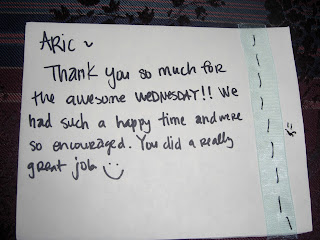 ARIC ~
Thank you so much for
the awesome WEDNESDAY!! We
had such a happy time and were
so encouraged. You did a really
great job